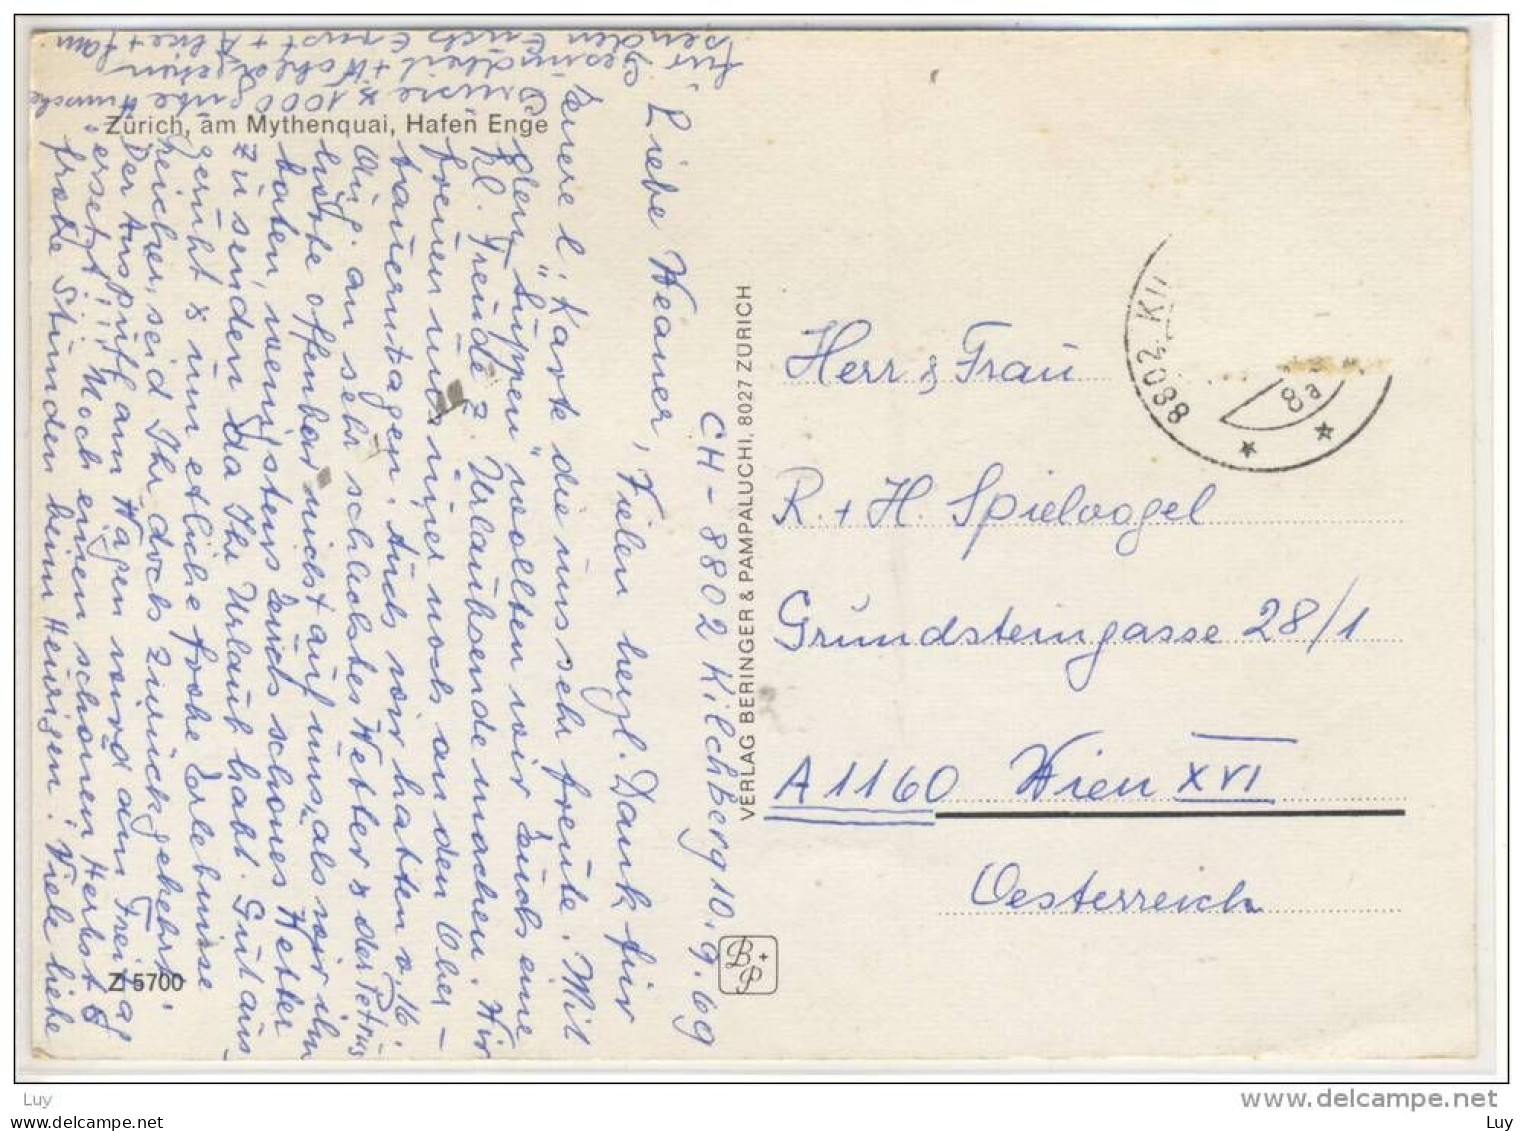 Zürich, am Mythenquai, Hafen Enge
Z 5700
VERLAG BERINGER & PAMPALUCHI, 8027 ZÜRICH
B+P
CH-8802 Kilchberg 10.9.69
Liebe Weaner, Vielen herzl. Dank für
Eure l. Karte die uns sehr freute. Mit
"Suppen" wollten wir Euch eine
kl. Freude z. Urlaubsende machen. Wir
freuen uns immer noch an den Ober-
tauerntagen. Auch wir hatten v. 16.
Aug. an sehr schlechtes Wetter & der Petrus
hörte offenbar nicht auf uns, als wir ihn
baten, wenigstens Euch schönes Wetter
zu senden da Ihr Urlaub habt. Gut aus-
geruht & um etliche frohe Erlebnisse
reicher, seid Ihr doch zurückgekehrt.
Der Auspuff am Wagen wird am Freitag
ersetzt!!! Noch einen schönen Herbst &
frohe Stunden beim Heurigen! Viele liebe
Grüsse & 1000 gute Wünsche
für Gesundheit + Wohlergehen
senden Euch Ernst + Alice + Fam.
8802 KI
8a
Herr & Frau
R. + H. Spielvogel
Grundsteingasse 28/1
A 1160 Wien XVI
Oesterreich
Luy
www.delcampe.net
Luy
www.delcampe.net
Luy